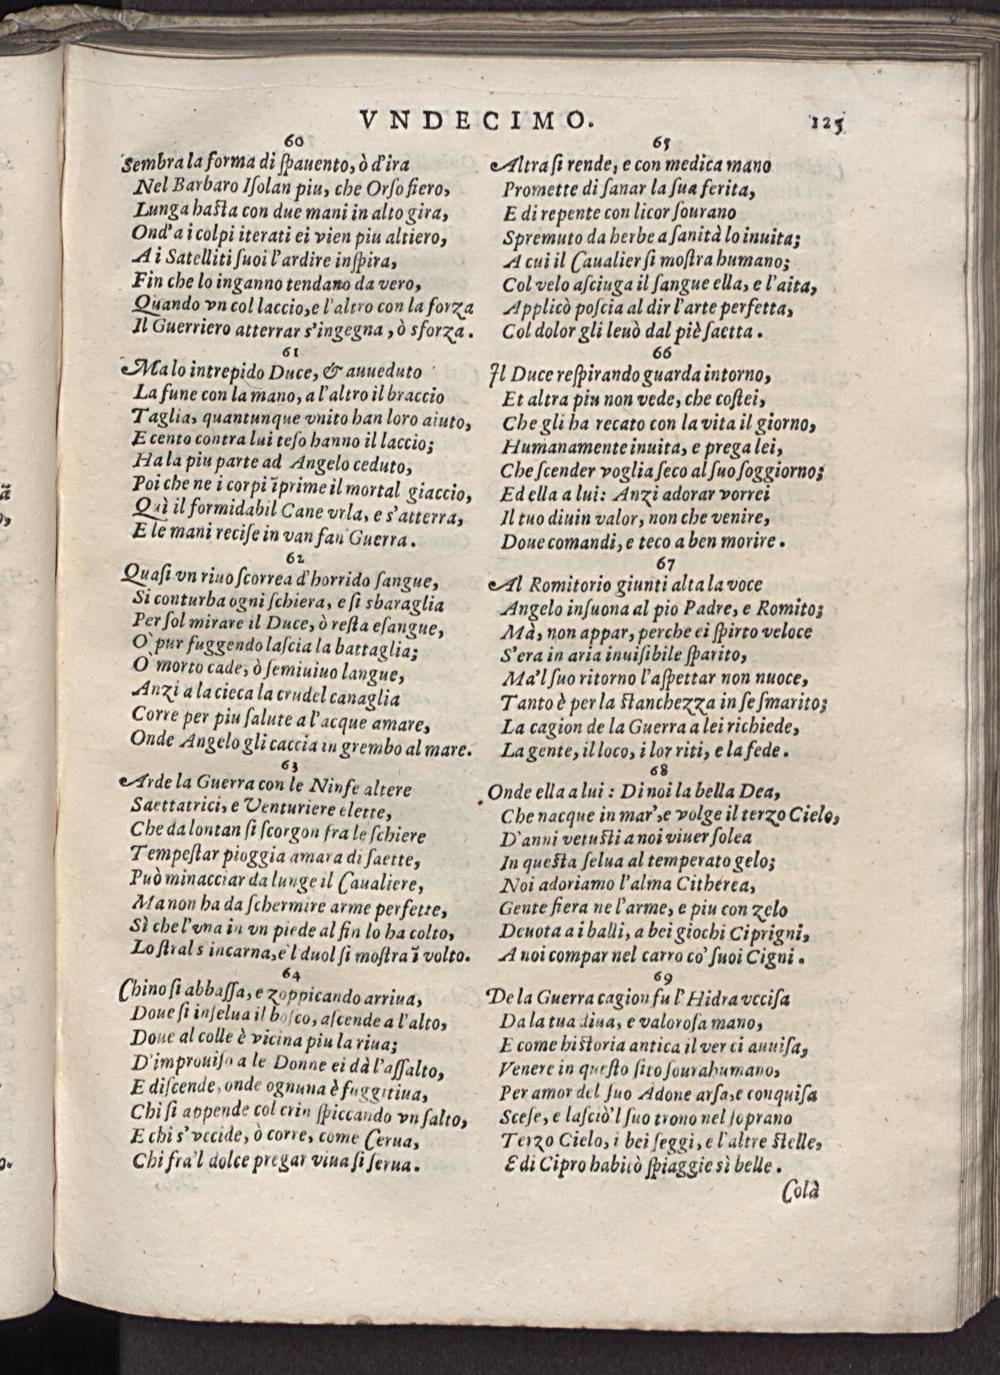 VNDECIMO. 125
60
Sembra la forma di ſpauento, ò d'ira
Nel Barbaro Iſolan piu, che Orſo fiero,
Lunga haſta con due mani in alto gira,
Ond'a i colpi iterati ei vien piu altiero,
A i Satelliti ſuoi l'ardire inſpira,
Fin che lo inganno tendano da vero,
Quando vn col laccio, e l'altro con la forza
Il Guerriero atterrar s'ingegna, ò sforza.
61
Ma lo intrepido Duce, & auueduto
La fune con la mano, a l'altro il braccio
Taglia, quantunque vnito han loro aiuto,
E cento contra lui teſo hanno il laccio;
Ha la piu parte ad Angelo ceduto,
Poi che ne i corpi īprime il mortal giaccio,
Quì il formidabil Cane vrla, e s'atterra,
E le mani reciſe in van fan Guerra.
62
Quaſi vn riuo ſcorrea d'horrido ſangue,
Si conturba ogni ſchiera, e ſi sbaraglia
Per ſol mirare il Duce, ò reſta eſangue,
O' pur fuggendo laſcia la battaglia;
O' morto cade, ò ſemiuiuo langue,
Anzi a la cieca la crudel canaglia
Corre per piu ſalute a l'acque amare,
Onde Angelo gli caccia in grembo al mare.
63
Arde la Guerra con le Ninfe altere
Saettatrici, e Venturiere elette,
Che da lontan ſi ſcorgon fra le ſchiere
Tempeſtar pioggia amara di ſaette,
Può minacciar da lunge il Caualiere,
Ma non ha da ſchermire arme perfette,
Sì che l'vna in vn piede al fin lo ha colto,
Lo ſtral s'incarna, e'l duol ſi moſtra ī volto.
64
Chino ſi abbaſſa, e zoppicando arriua,
Doue ſi inſelua il boſco, aſcende a l'alto,
Doue al colle è vicina piu la riua;
D'improuiſo a le Donne ei dà l'aſſalto,
E diſcende, onde ognuna è fuggitiua,
Chi ſi appende col crin ſpiccando vn ſalto,
E chi s'vccide, ò corre, come Cerua,
Chi fra'l dolce pregar viua ſi ſerua.
65
Altra ſi rende, e con medica mano
Promette di ſanar la ſua ferita,
E di repente con licor ſourano
Spremuto da herbe a ſanità lo inuita;
A cui il Caualier ſi moſtra humano;
Col velo aſciuga il ſangue ella, e l'aita,
Applicò poſcia al dir l'arte perfetta,
Col dolor gli leuò dal piè ſaetta.
66
Il Duce reſpirando guarda intorno,
Et altra piu non vede, che coſtei,
Che gli ha recato con la vita il giorno,
Humanamente inuita, e prega lei,
Che ſcender voglia ſeco al ſuo ſoggiorno;
Ed ella a lui: Anzi adorar vorrei
Il tuo diuin valor, non che venire,
Doue comandi, e teco a ben morire.
67
Al Romitorio giunti alta la voce
Angelo inſuona al pio Padre, e Romito;
Mà, non appar, perche ei ſpirto veloce
S'era in aria inuiſibile ſparito,
Ma'l ſuo ritorno l'aſpettar non nuoce,
Tanto è per la ſtanchezza in ſe ſmarito;
La cagion de la Guerra a lei richiede,
La gente, il loco, i lor riti, e la fede.
68
Onde ella a lui: Di noi la bella Dea,
Che nacque in mar', e volge il terzo Cielo,
D'anni vetuſti a noi viuer ſolea
In queſta ſelua al temperato gelo;
Noi adoriamo l'alma Citherea,
Gente fiera ne l'arme, e piu con zelo
Deuota a i balli, a bei giochi Ciprigni,
A noi compar nel carro co' ſuoi Cigni.
69
De la Guerra cagion fu l'Hidra vcciſa
Da la tua diua, e valoroſa mano,
E come hiſtoria antica il ver ci auuiſa,
Venere in queſto ſito ſourahumano,
Per amor del ſuo Adone arſa, e conquiſa
Sceſe, e laſciò'l ſuo trono nel ſoprano
Terzo Cielo, i bei ſeggi, e l'altre ſtelle,
E di Cipro habitò ſpiaggie sì belle.
Colà